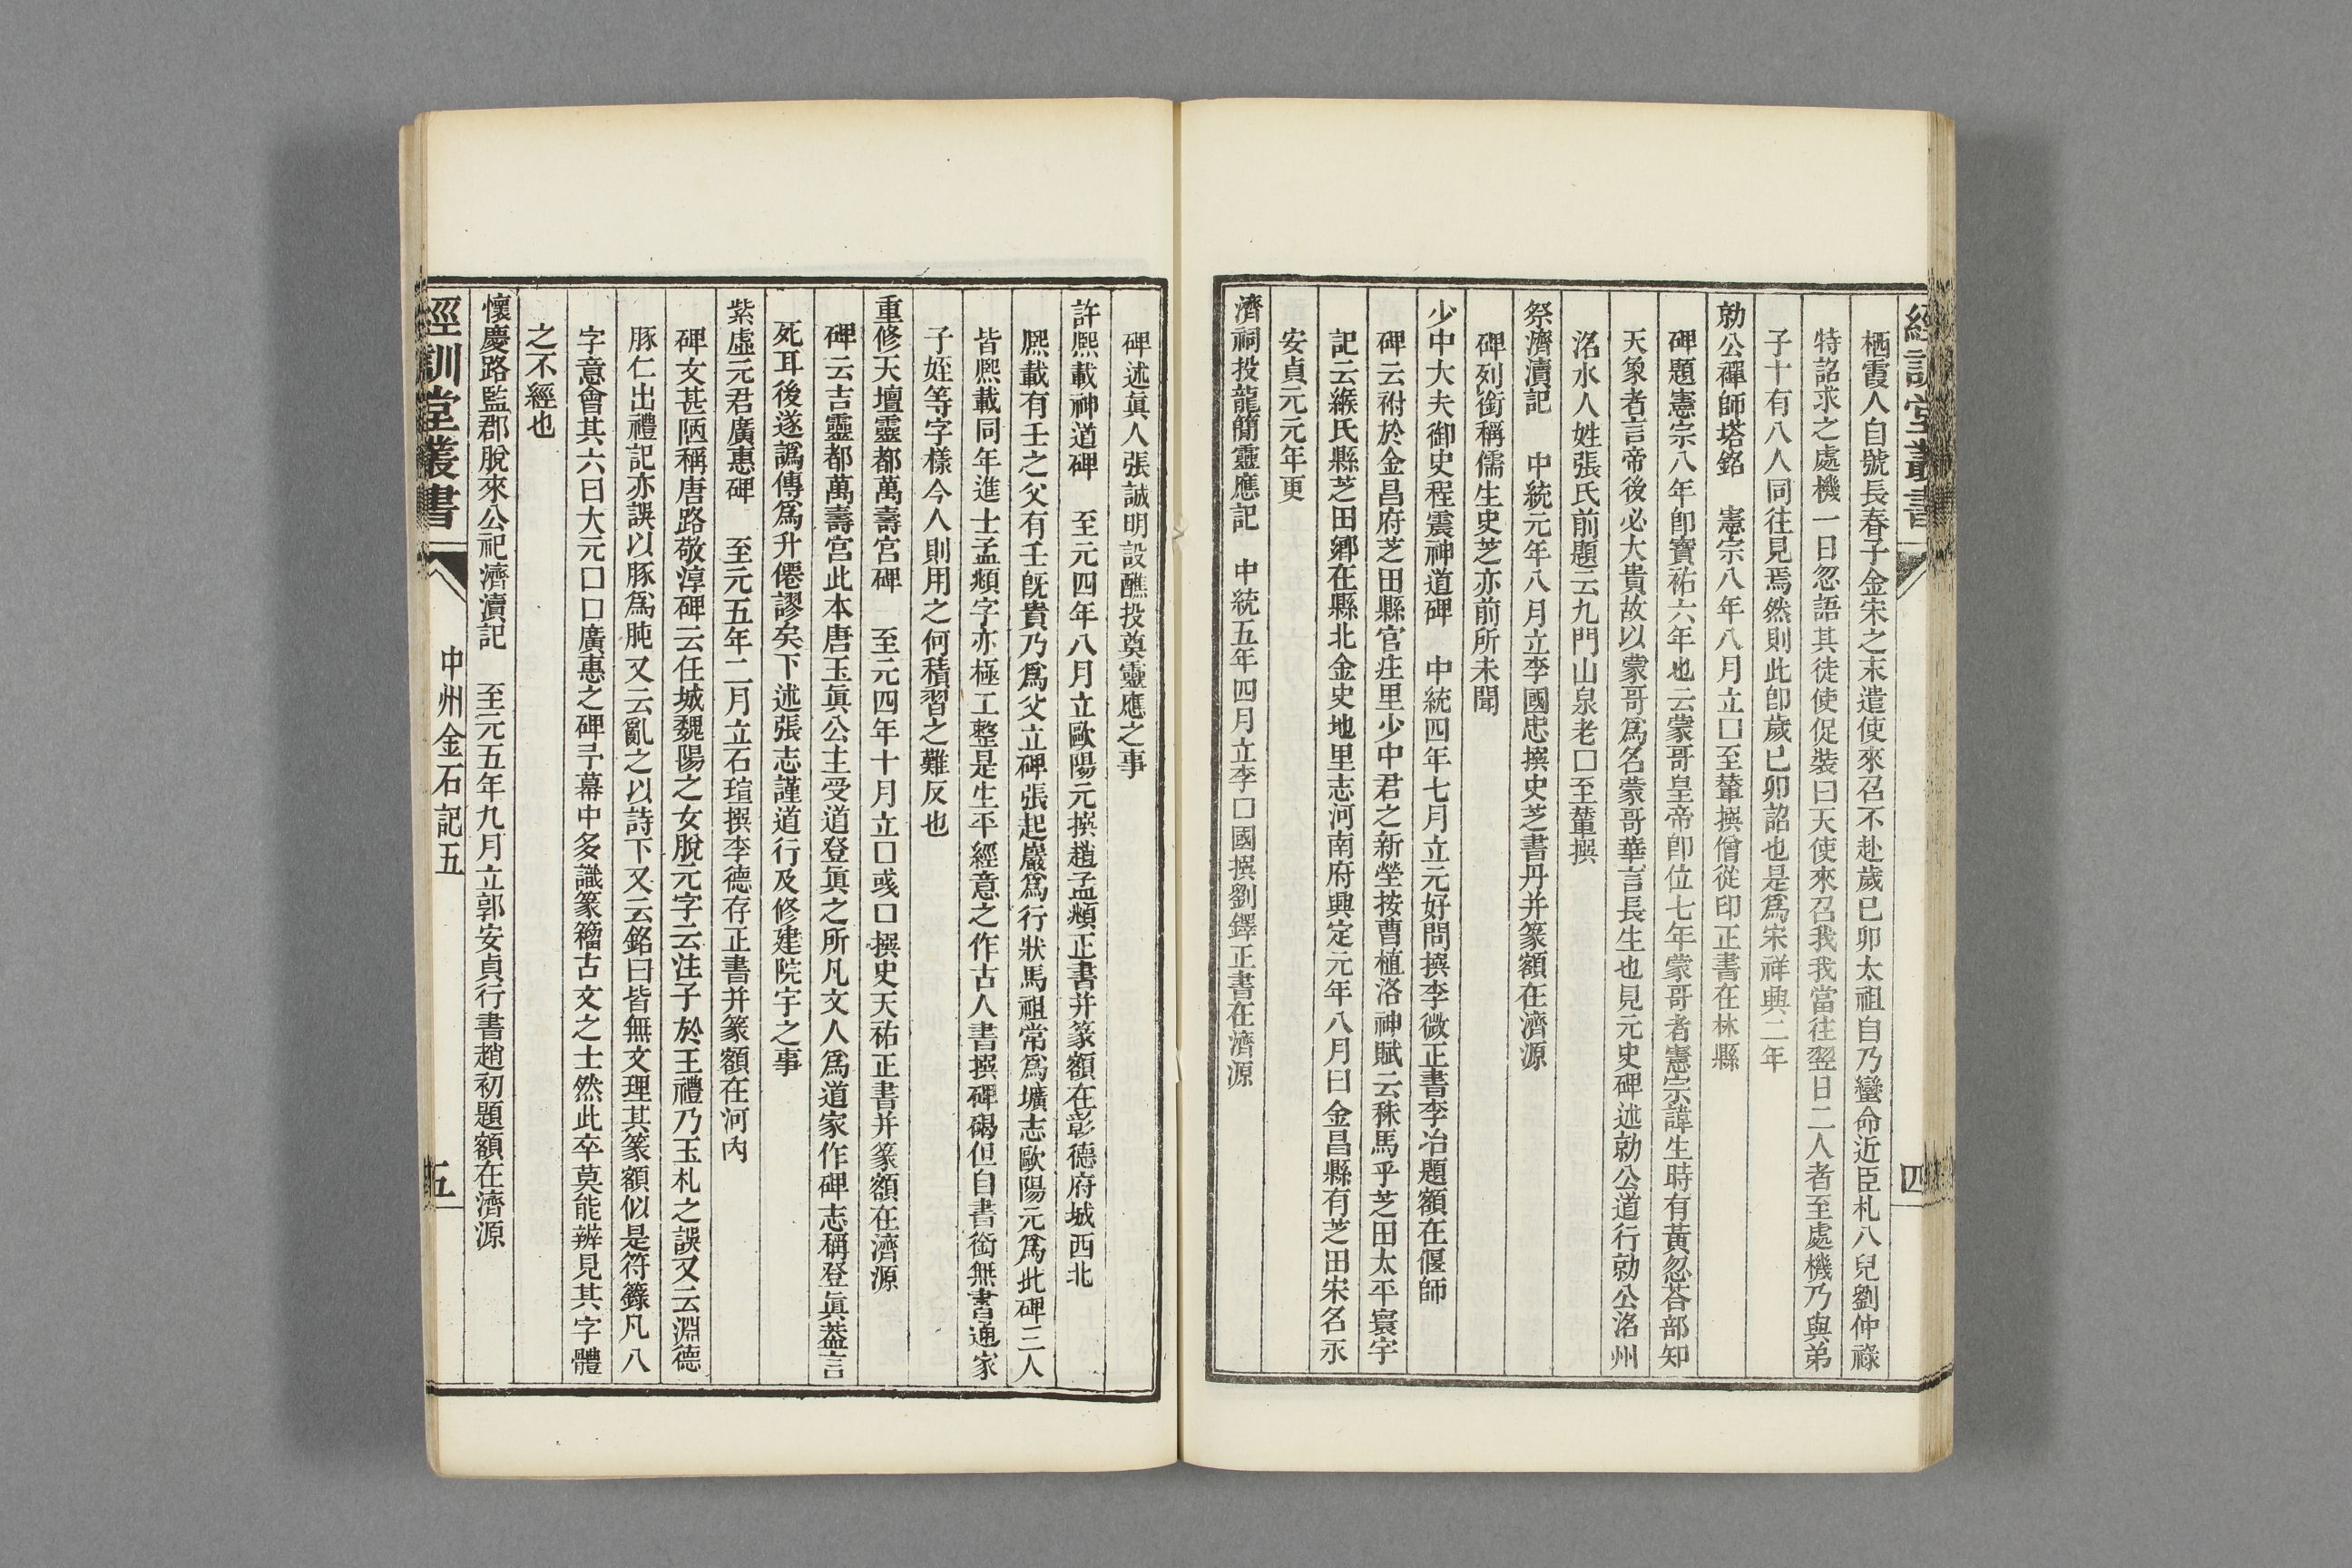 經訓堂叢書
四
栖霞人自號長春子金宋之末遣使來召不赴歲巳卯太祖自乃蠻命近臣札八兒劉仲祿
特詔求之處機一日忽語其徒使促裝曰天使來召我我當往翌日二人者至處機乃與弟
子十有八人同往見焉然則此卽歲巳卯詔也是爲宋祥興二年
勍公禪師塔銘　憲宗八年八月立口至輦撰僧從印正書在林縣
碑題憲宗八年卽寶祐六年也云蒙哥皇帝卽位七年蒙哥者憲宗諱生時有黃忽荅部知
天象者言帝後必大貴故以蒙哥爲名蒙哥華言長生也見元史碑述勍公道行勍公洺州
洺水人姓張氏前題云九門山泉老口至輦撰
祭濟瀆記　中統元年八月立李國忠撰史芝書丹并篆額在濟源
碑列銜稱儒生史芝亦前所未聞
少中大夫御史程震神道碑　中統四年七月立元好問撰李微正書李冶題額在偃師
碑云祔於金昌府芝田縣官庄里少中君之新塋按曹植洛神賦云秣馬乎芝田太平寰宇
記云緱氏縣芝田鄉在縣北金史地里志河南府興定元年八月曰金昌縣有芝田宋名永
安貞元元年更
濟祠投龍簡靈應記　中統五年四月立李口國撰劉鐸正書在濟源
碑述眞人張誠明設醮投奠靈應之事
許熈載神道碑　至元四年八月立歐陽元撰趙孟頫正書并篆額在彰德府城西北
熈載有壬之父有壬旣貴乃爲父立碑張起巖爲行狀馬祖常爲壙志歐陽元爲此碑三人
皆熈載同年進士孟頫字亦極工整是生平經意之作古人書撰碑碣但自書銜無書通家
子姪等字樣今人則用之何積習之難反也
重修天壇靈都萬壽宮碑　至元四年十月立口彧口撰史天祐正書并篆額在濟源
碑云吉靈都萬壽宮此本唐玉眞公主受道登眞之所凡文人爲道家作碑志稱登眞葢言
死耳後遂譌傳爲升僊謬矣下述張志謹道行及修建院宇之事
紫虛元君廣惠碑　至元五年二月立石瑄撰李德存正書并篆額在河內
碑文甚陋稱唐路敬淳碑云任城魏陽之女脫元字云注子於王禮乃玉札之誤又云淵德
豚仁出禮記亦誤以豚爲肫又云亂之以詩下又云銘曰皆無文理其篆額似是符籙凡八
字意會其六曰大元口口廣惠之碑予幕中多識篆籀古文之士然此卒莫能辨見其字體
之不經也
懷慶路監郡脫來公祀濟瀆記　至元五年九月立郭安貞行書趙初題額在濟源
經訓堂叢書
中州金石記五
五